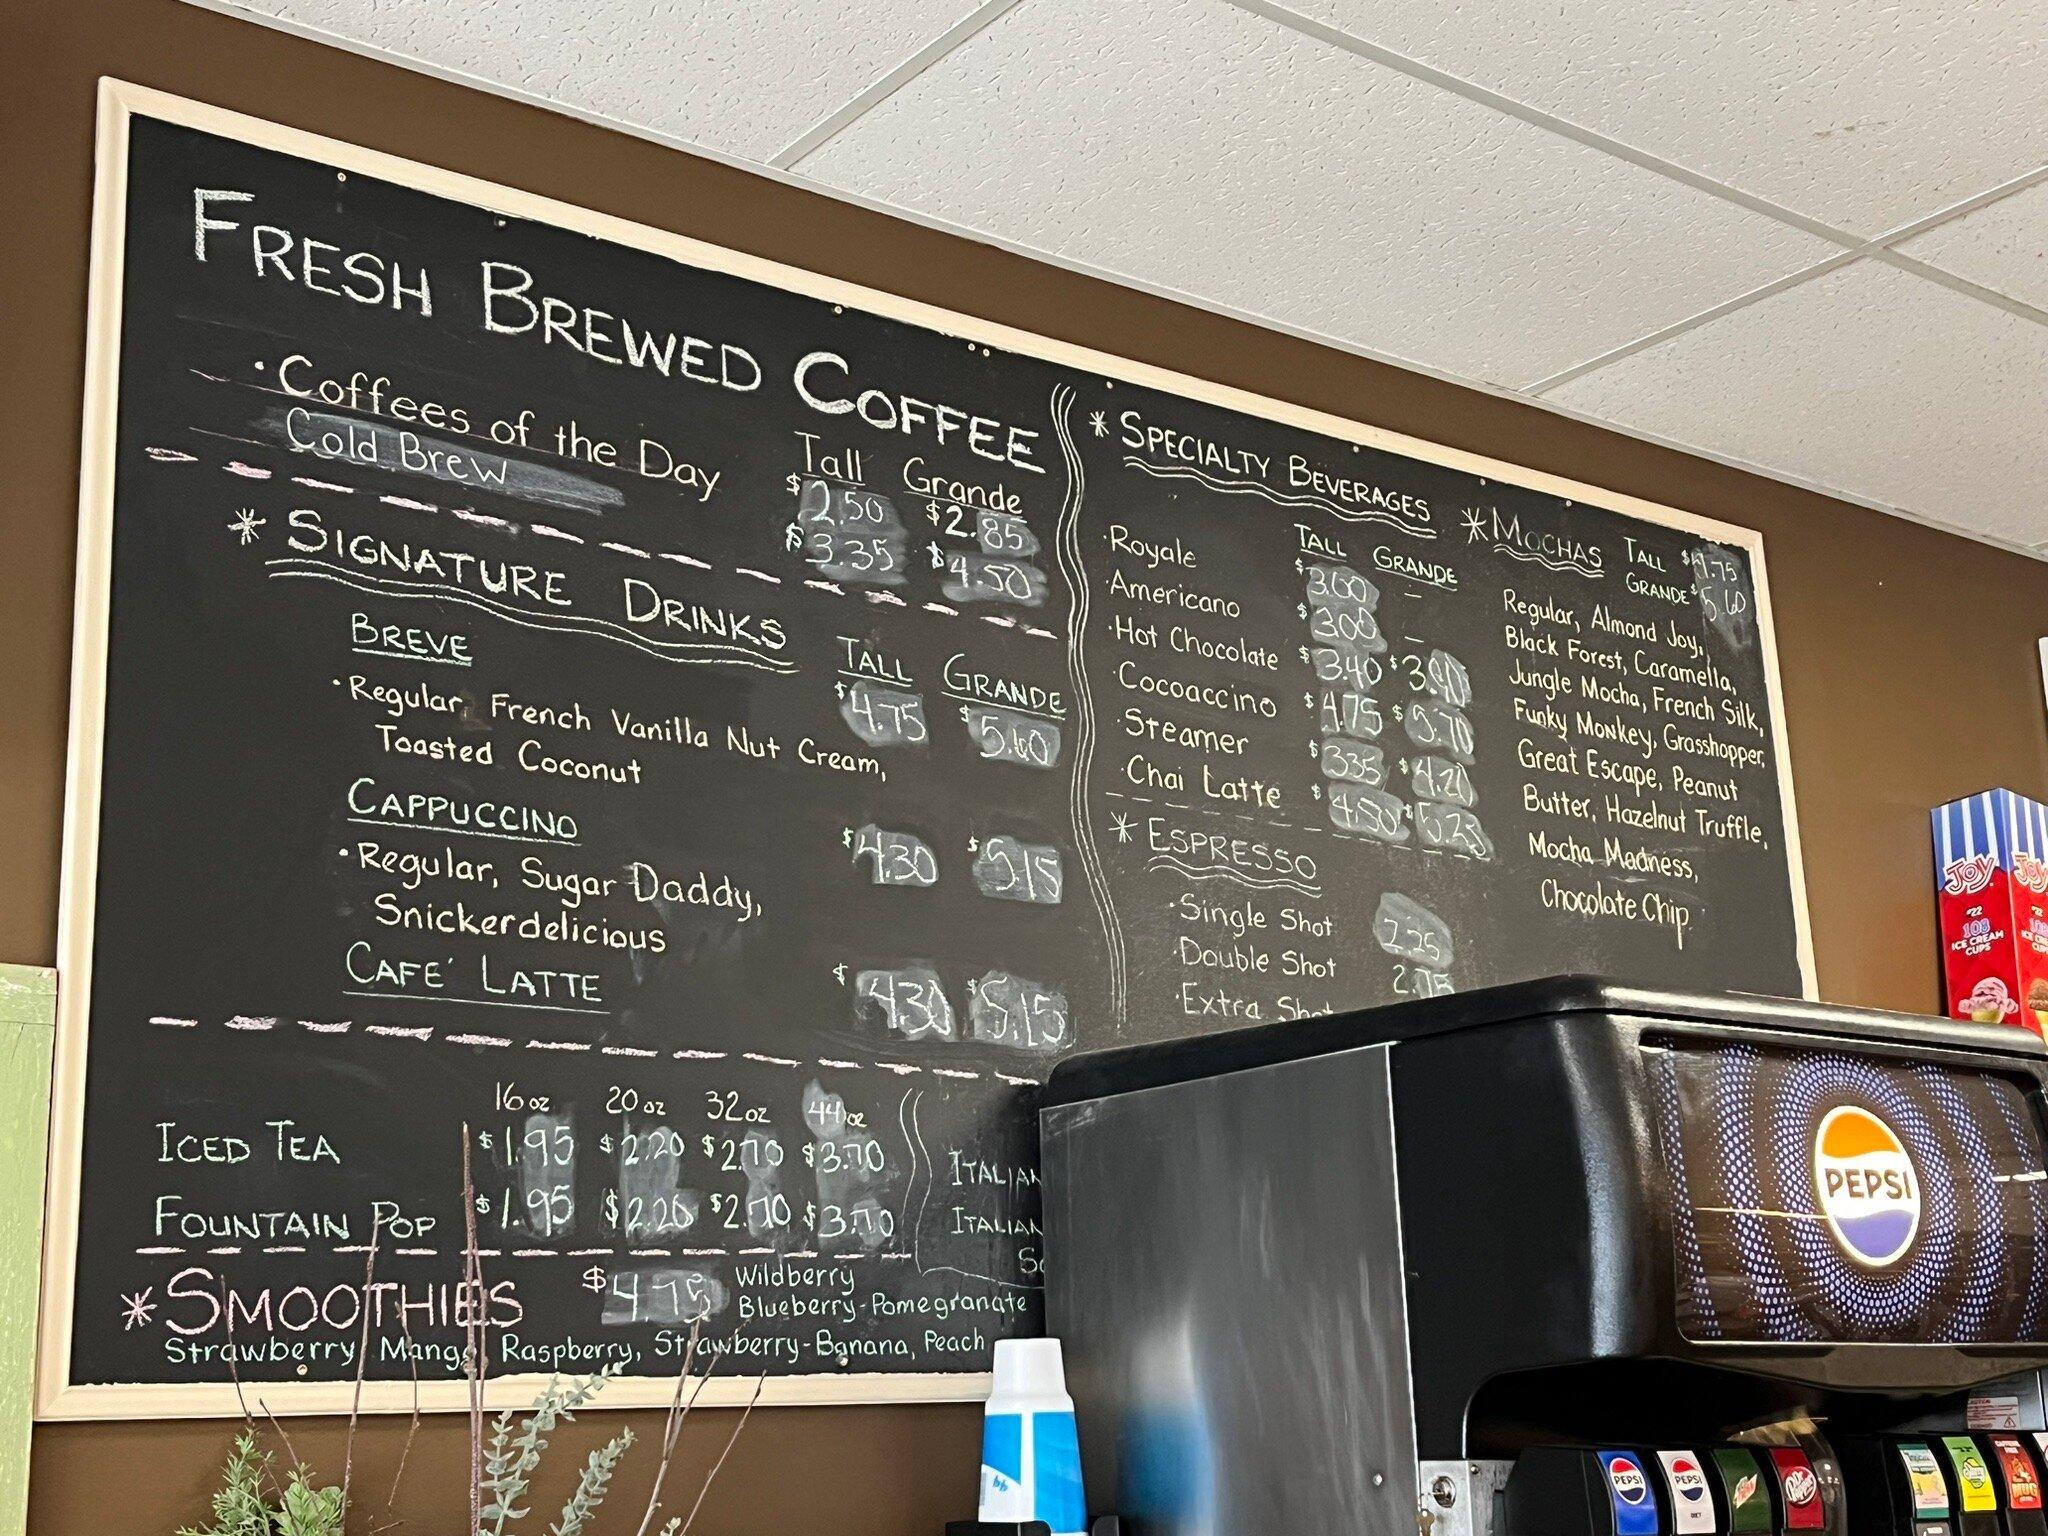 FRESH BREWED COFFEE
Tall Grande
• Coffees of the Day $2.50 $2.85
Cold Brew $3.35 $4.50
* SIGNATURE DRINKS
TALL GRANDE
BREVE $4.75 $5.60
• Regular, French Vanilla Nut Cream,
Toasted Coconut
CAPPUCCINO $4.30 $5.15
• Regular, Sugar Daddy,
Snickerdelicious
CAFE´ LATTE $4.30 $5.15
16 oz 20 oz 32 oz 44 oz
ICED TEA $1.95 $2.20 $2.70 $3.70
FOUNTAIN POP $1.95 $2.20 $2.70 $3.70
* SMOOTHIES $4.75 Wildberry
Blueberry-Pomegranate
Strawberry Mango Raspberry, Strawberry-Banana, Peach
ITALIAN
ITALIAN
* SPECIALTY BEVERAGES
TALL GRANDE
• Royale $3.00 –
• Americano $3.00 –
• Hot Chocolate $3.40 $3.90
• Cocoaccino $4.75 $5.70
• Steamer $3.35 $4.20
• Chai Latte $4.50 $5.25
* ESPRESSO
• Single Shot 2.25
• Double Shot 2.75
• Extra Shot
* MOCHAS TALL $4.75
GRANDE $5.60
Regular, Almond Joy,
Black Forest, Caramella,
Jungle Mocha, French Silk,
Funky Monkey, Grasshopper,
Great Escape, Peanut
Butter, Hazelnut Truffle,
Mocha Madness,
Chocolate Chip
JOY JOY
#22
108
ICE CREAM
CUPS
PEPSI
PEPSI
PEPSI
DIET
MUG